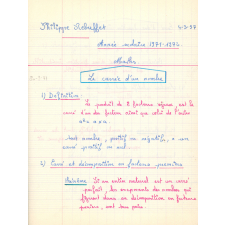 Philippe
Année scolaire 1971-1972
Maths
Le carré d'un nombre
1) Définition:
Le produit de 2 facteurs égaux, est le
carré d'un des facteurs
a² = a × a.
Tout nombre, positif ou négatif, a un
carré positif ou nul.
2) Carré et décomposition en facteurs premiers
Si un entier naturel est un carré
parfait, les exposants des nombres qui
figurent dans sa décomposition en facteurs
premiers, sont tous pairs.